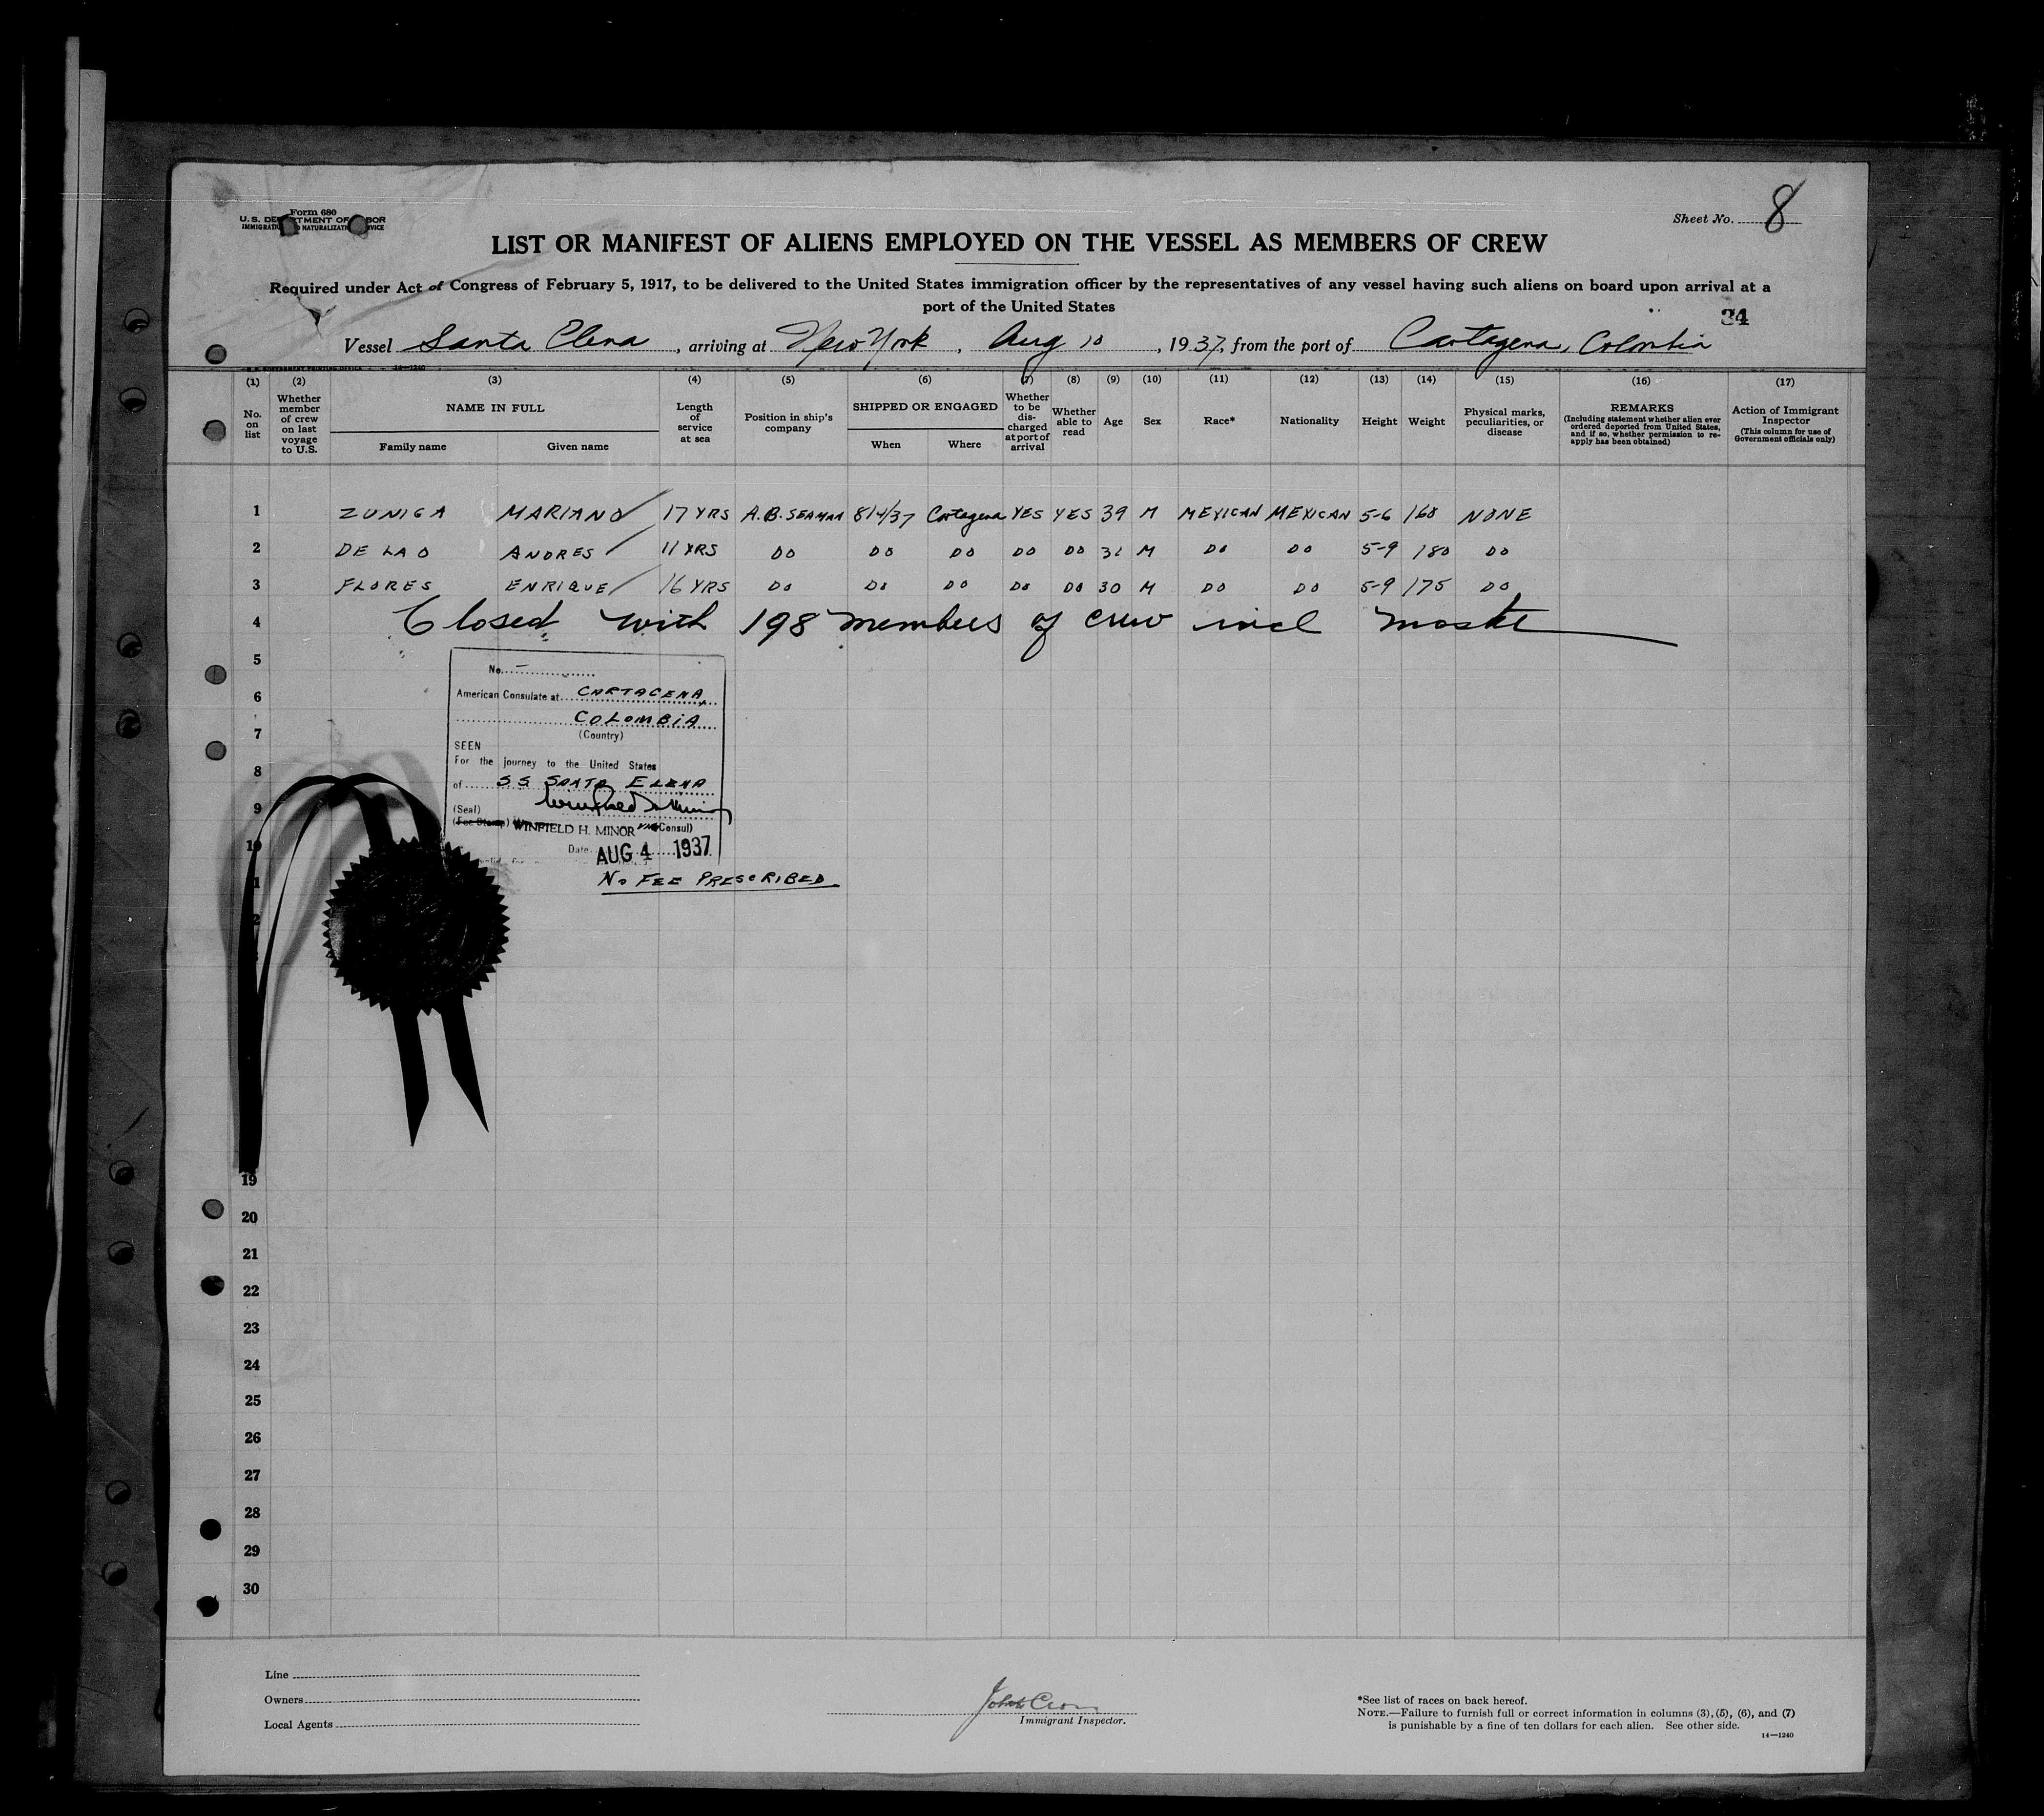 Form 680
U. S. DE TMENT OF BOR
IMMIGRATI NATURALIZATI VICE
Sheet No. 8
LIST OR MANIFEST OF ALIENS EMPLOYED ON THE VESSEL AS MEMBERS OF CREW
Required under Act of Congress of February 5, 1917, to be delivered to the United States immigration officer by the representatives of any vessel having such aliens on board upon arrival at a
port of the United States
34
Vessel Santa Elena, arriving at New York, Aug 10, 1937, from the port of Cartagena, Colombia
14—1240
(1) (2) (3) (4) (5) (6) (7) (8) (9) (10) (11) (12) (13) (14) (15) (16) (17)
No. on list
Whether member of crew on last voyage to U.S.
NAME IN FULL
Family name Given name
Length of service at sea
Position in ship's company
SHIPPED OR ENGAGED
When Where
Whether to be discharged at port of arrival
Whether able to read
Age Sex Race* Nationality Height Weight
Physical marks, peculiarities, or disease
REMARKS
(Including statement whether alien ever ordered deported from United States, and if so, whether permission to reapply has been obtained)
Action of Immigrant Inspector
(This column for use of Government officials only)
1 ZUNIGA MARIANO 17 YRS A.B. SEAMAN 8/4/37 Cartagena YES YES 39 M MEXICAN MEXICAN 5-6 160 NONE
2 DE LAO ANDRES 11 YRS DO DO DO DO DO 31 M DO DO 5-9 180 DO
3 FLORES ENRIQUE 16 YRS DO DO DO DO DO 30 M DO DO 5-9 175 DO
4 Closed with 198 members of crew incl master
5
6
7
8
9
10
No.
American Consulate at CARTAGENA,
COLOMBIA
(Country)
SEEN
For the journey to the United States
of S.S. SANTA ELENA
(Seal)
(Fee Stamp) WINFIELD H. MINOR Vice Consul)
Date AUG 4 1937
NO FEE PRESCRIBED
19
20
21
22
23
24
25
26
27
28
29
30
Line
Owners
Local Agents
Immigrant Inspector.
*See list of races on back hereof.
NOTE.—Failure to furnish full or correct information in columns (3), (5), (6), and (7)
is punishable by a fine of ten dollars for each alien. See other side.
14—1240